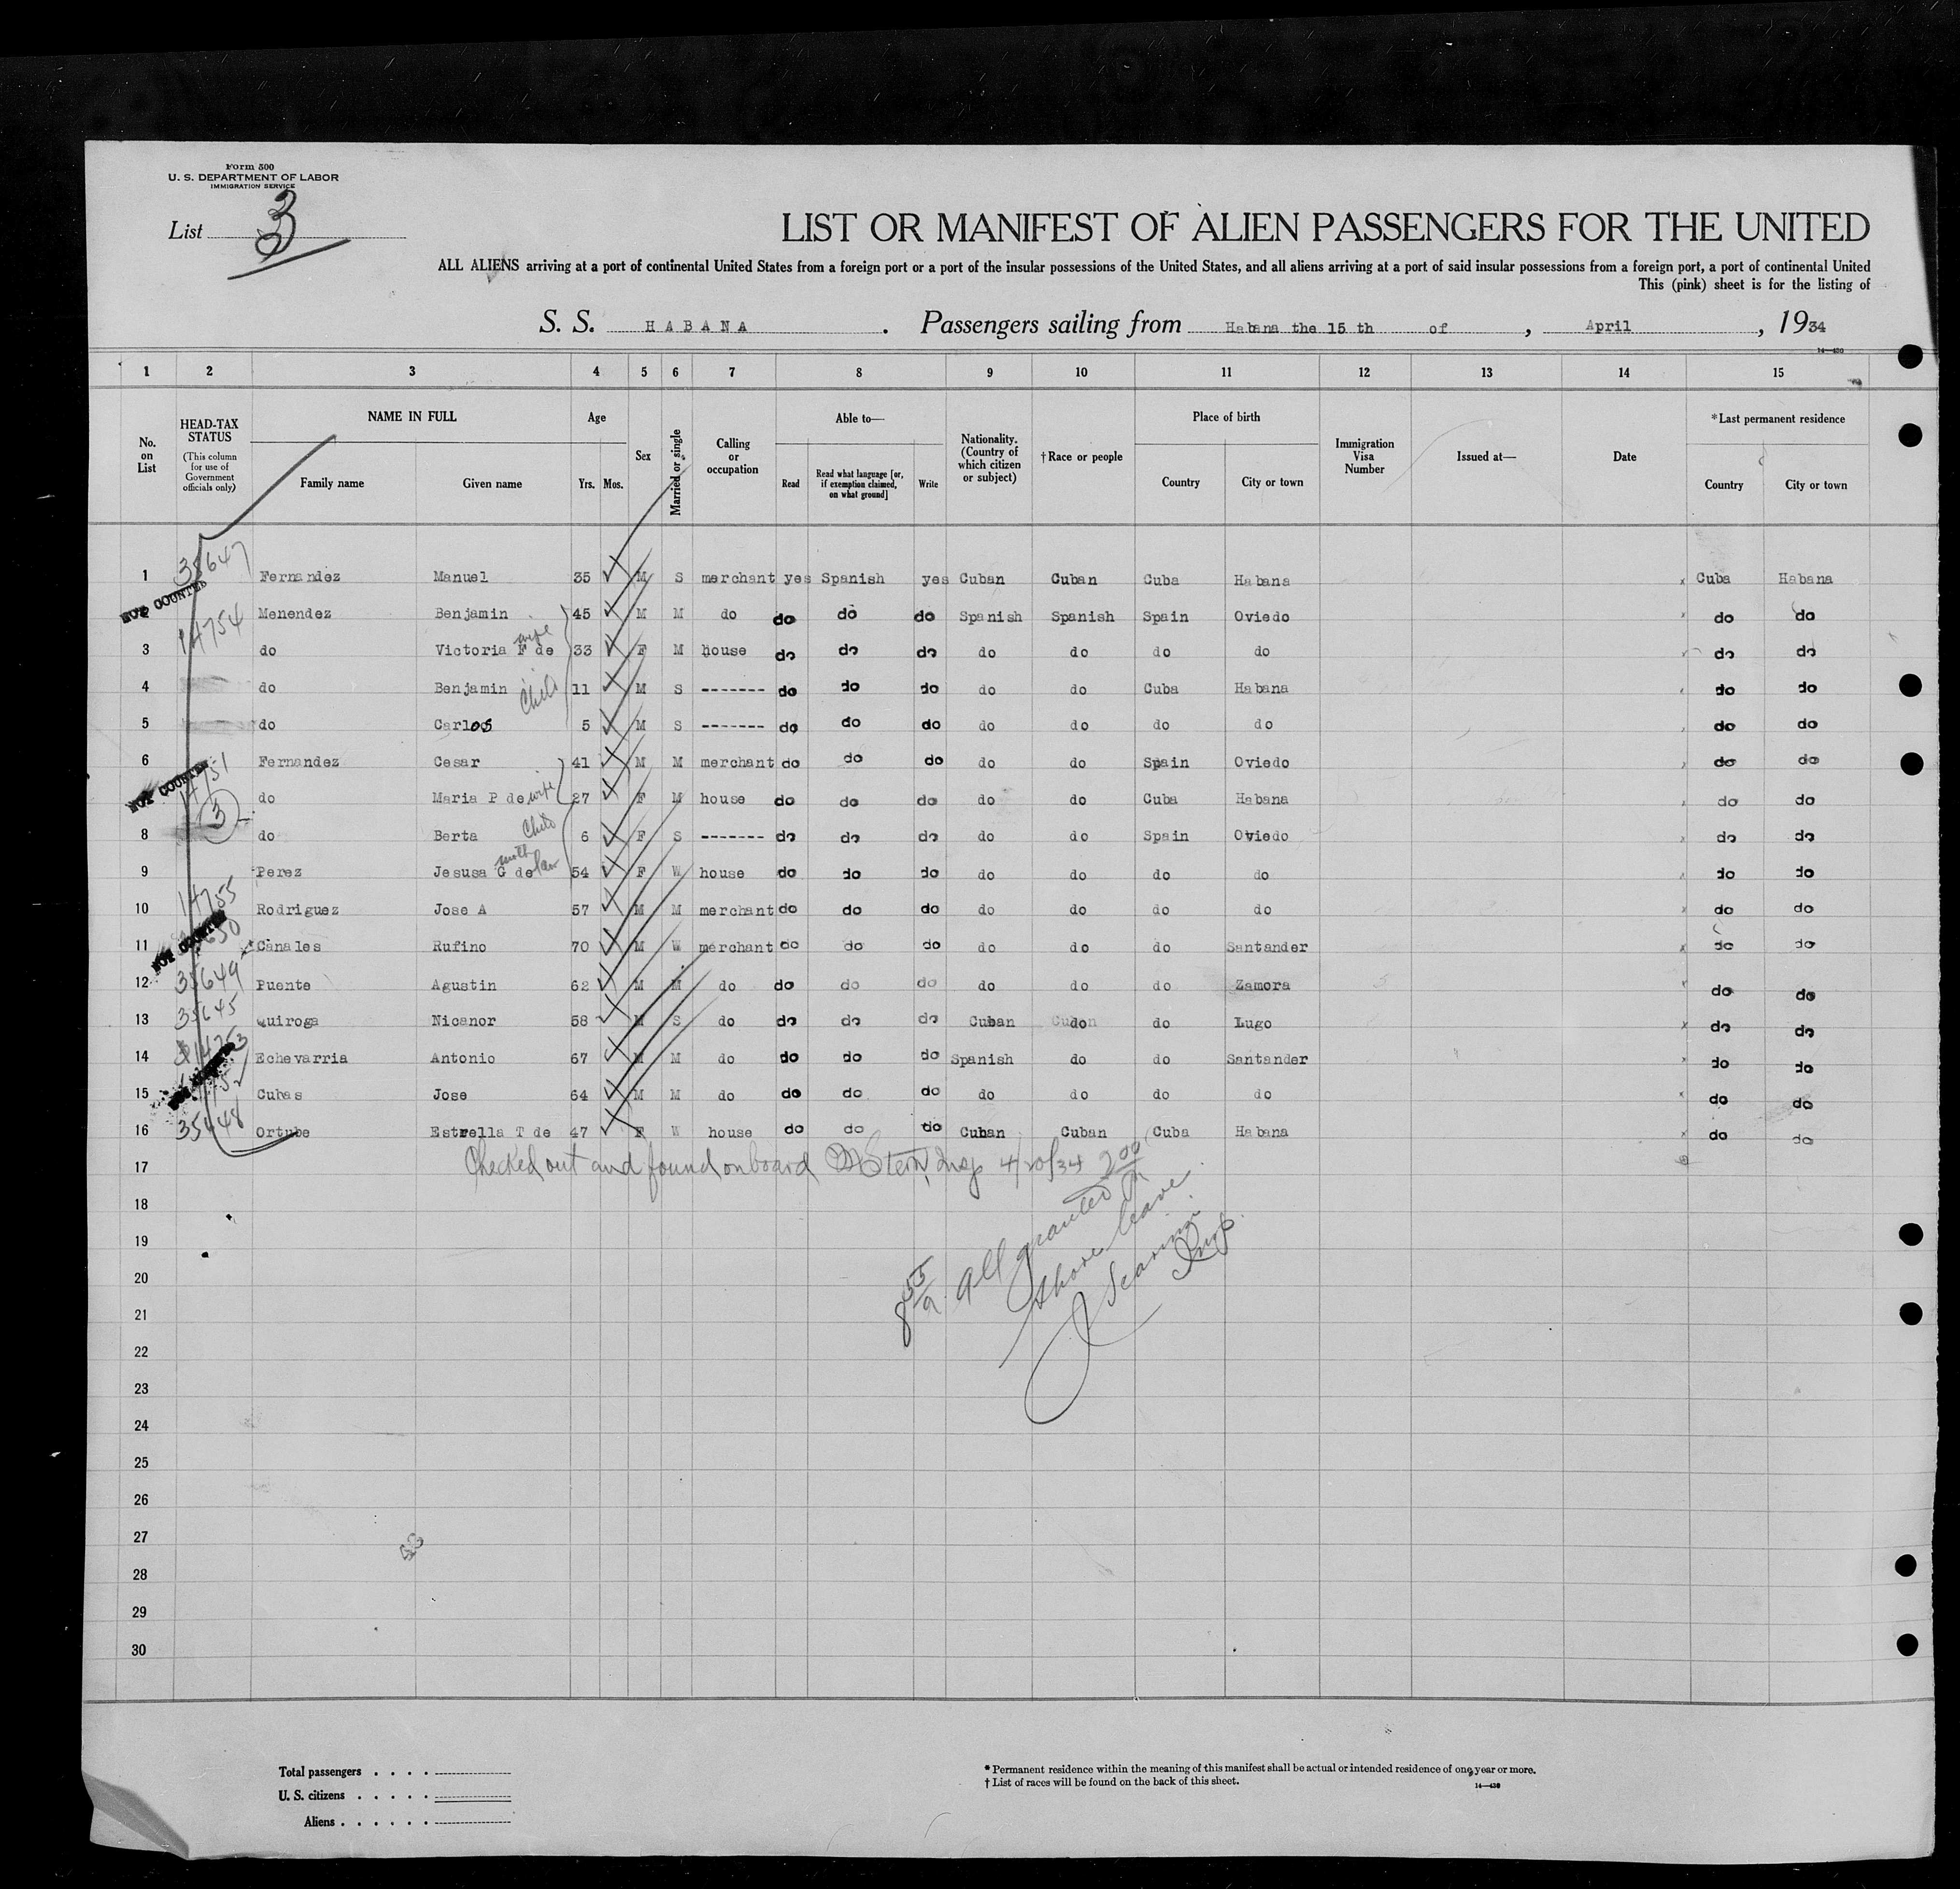 Form 500
U. S. DEPARTMENT OF LABOR
IMMIGRATION SERVICE
List 3
LIST OR MANIFEST OF ALIEN PASSENGERS FOR THE UNITED
ALL ALIENS arriving at a port of continental United States from a foreign port or a port of the insular possessions of the United States, and all aliens arriving at a port of said insular possessions from a foreign port, a port of continental United
This (pink) sheet is for the listing of
S. S. HABANA. Passengers sailing from Habana the 15 th of, April, 1934
14—430
1 2 3 4 5 6 7 8 9 10 11 12 13 14 15
No. on List
HEAD-TAX STATUS (This column for use of Government officials only)
NAME IN FULL Family name Given name
Age Yrs. Mos.
Sex
Married or single
Calling or occupation
Able to— Read Read what language [or, if exemption claimed, on what ground] Write
Nationality. (Country of which citizen or subject)
†Race or people
Place of birth Country City or town
Immigration Visa Number
Issued at—
Date
*Last permanent residence Country City or town
1 35647 Fernandez Manuel 35 M S merchant yes Spanish yes Cuban Cuban Cuba Habana Cuba Habana
NOT COUNTED 14754 Menendez Benjamin 45 M M do do do do Spanish Spanish Spain Oviedo do do
3 do Victoria F de wife 33 F M house do do do do do do do do do
4 do Benjamin child 11 M S ------- do do do do do Cuba Habana do do
5 do Carlos 5 M S ------- do do do do do do do do do
6 Fernandez Cesar 41 M M merchant do do do do do Spain Oviedo do do
NOT COUNTED 3 do Maria P de wife 27 F M house do do do do do Cuba Habana do do
8 do Berta child 6 F S ------- do do do do do Spain Oviedo do do
9 Perez Jesusa G de moth law 54 F W house do do do do do do do do do
10 14755 Rodriguez Jose A 57 M M merchant do do do do do do do do do
11 NOT COUNTED Canales Rufino 70 M W merchant do do do do do do Santander do do
12 35649 Puente Agustin 62 M M do do do do do do do Zamora do do
13 35645 Quiroga Nicanor 58 M S do do do do Cuban do do Lugo do do
14 Echevarria Antonio 67 M M do do do do Spanish do do Santander do do
15 Cubas Jose 64 M M do do do do do do do do do do
16 35448 Ortube Estrella T de 47 F W house do do do Cuban Cuban Cuba Habana do do
17 Checked out and found on board M Stern, Insp 4/20/34 2 00
18
19
20
21
22
23
24
25
26
27
28
29
30
8 55/a All granted
shore leave
Insp
Total passengers . . . .
U. S. citizens . . . . .
Aliens . . . . . .
* Permanent residence within the meaning of this manifest shall be actual or intended residence of one year or more.
† List of races will be found on the back of this sheet.
14—430